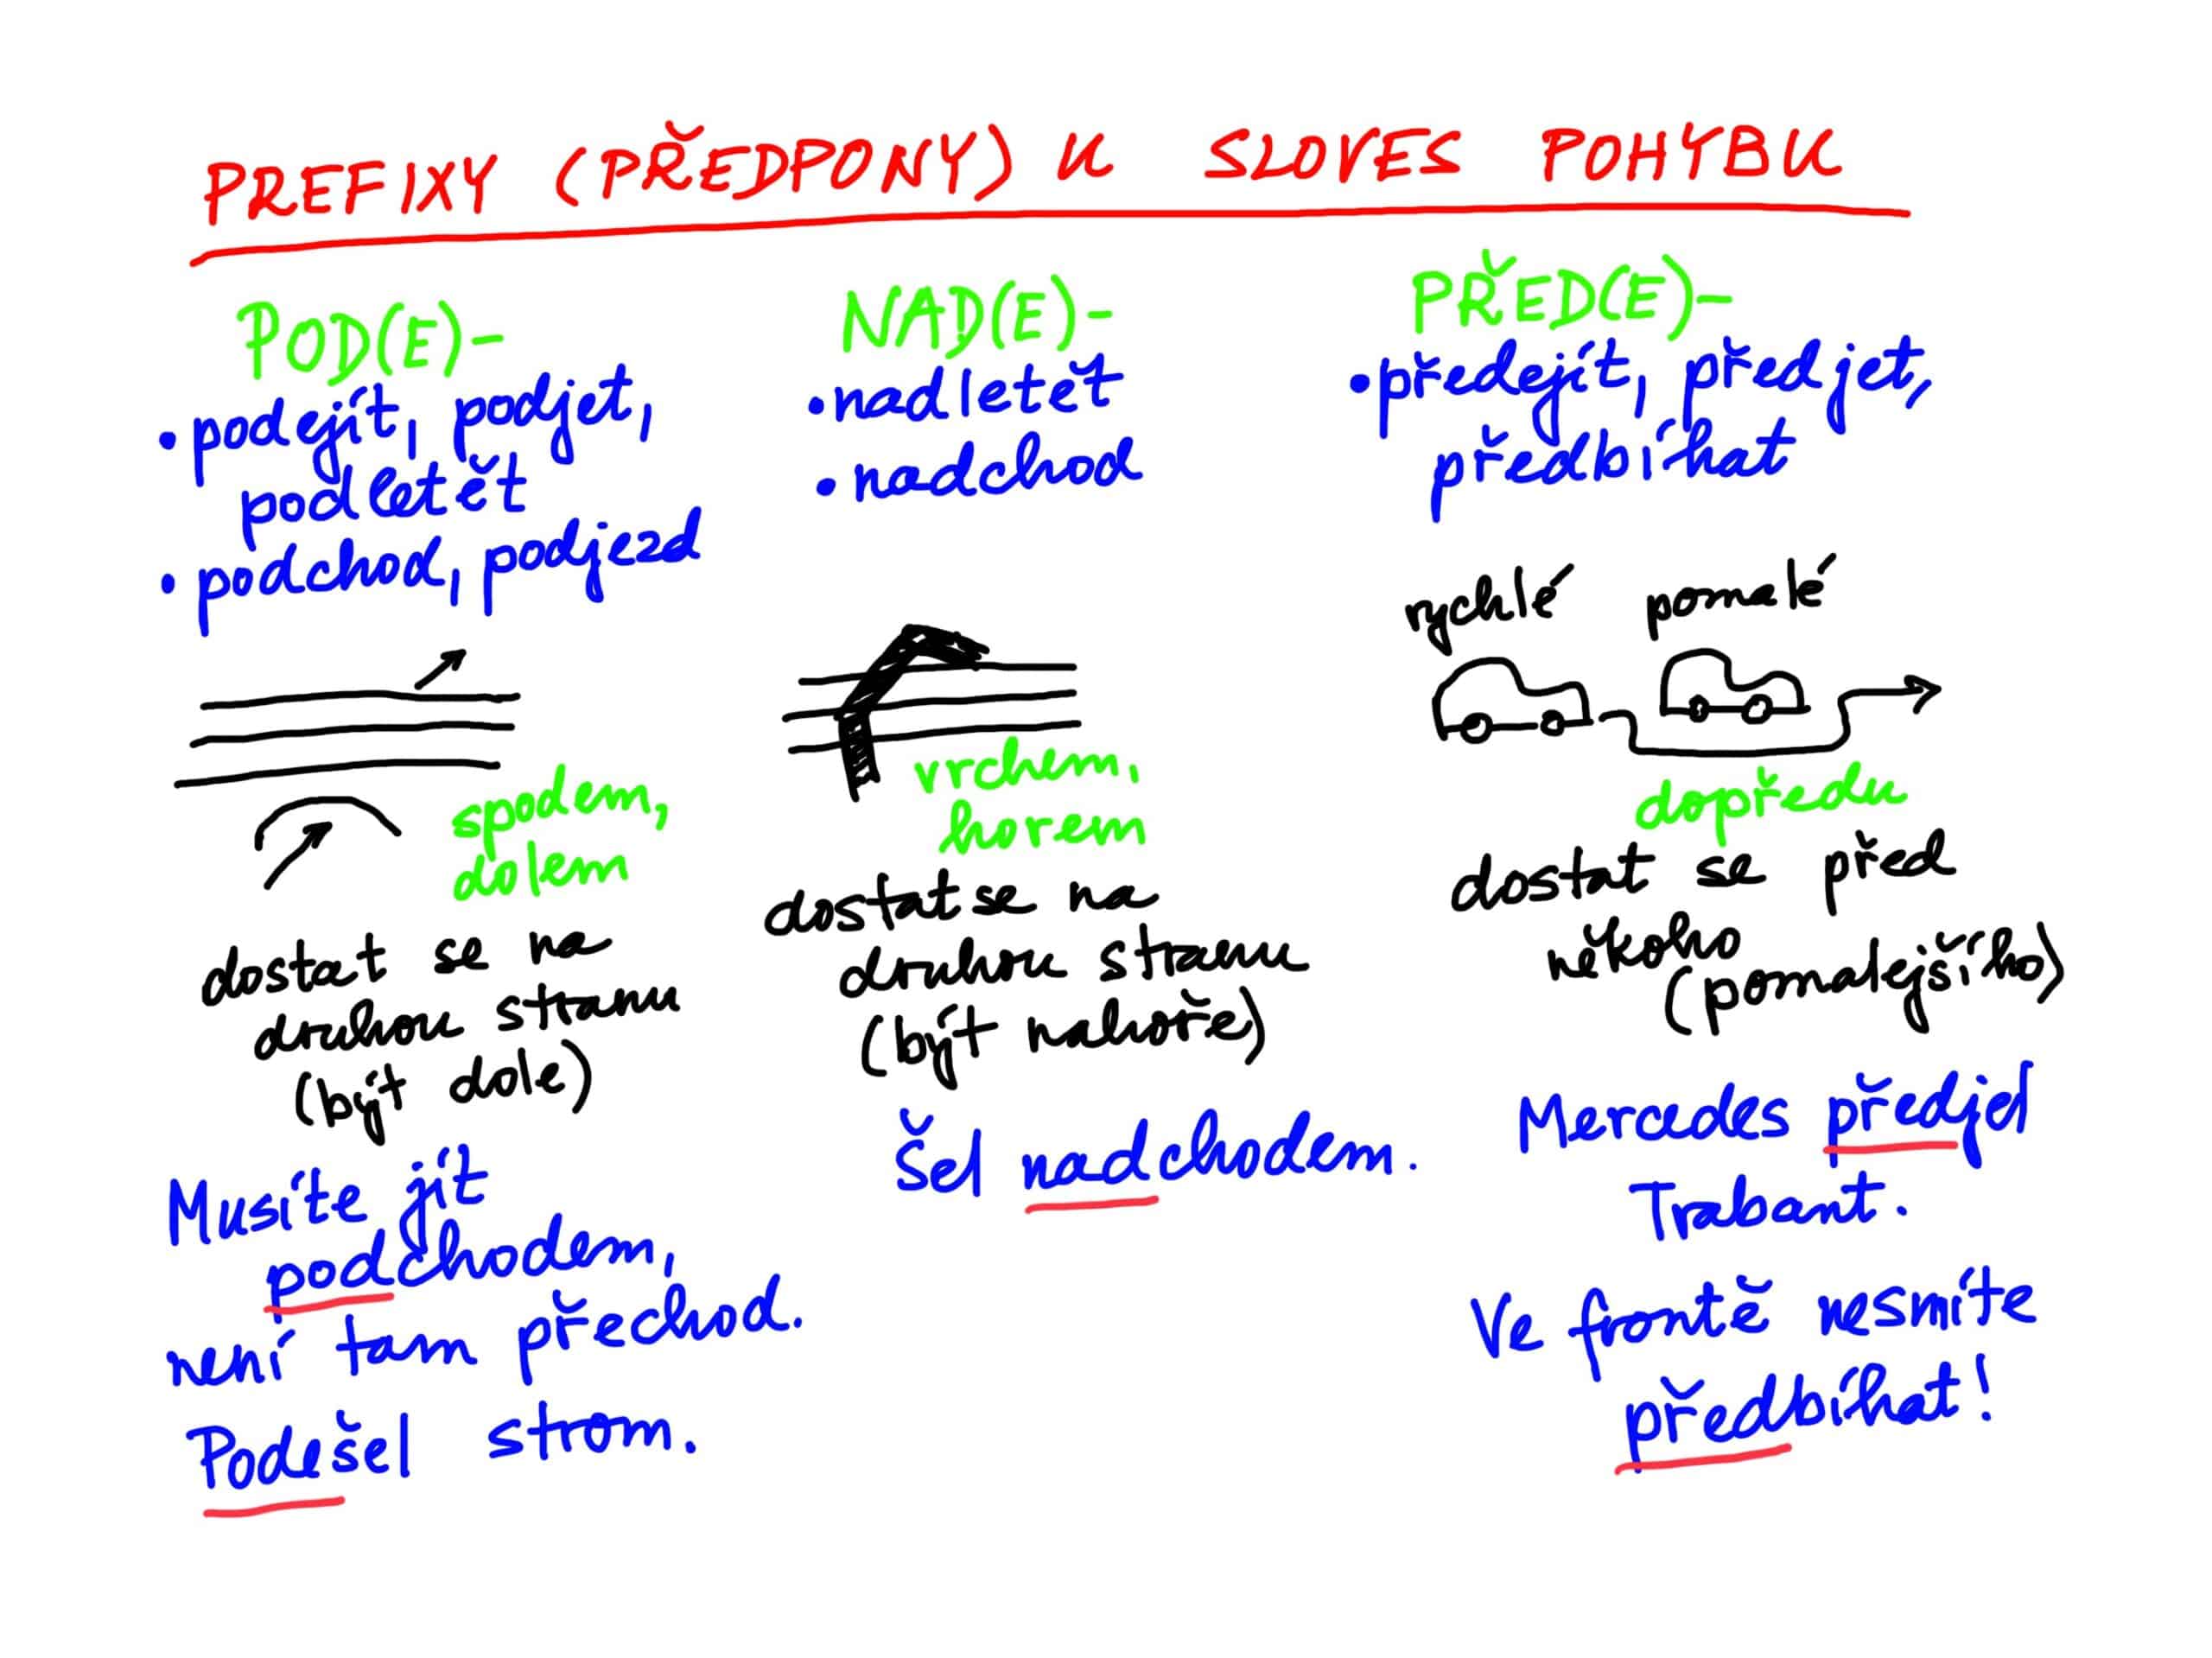 PREFIXY (PŘEDPONY) U SLOVES POHYBU
POD(E)-
• podejít, podjet,
podletět
• podchod, podjezd
spodem,
dolem
dostat se na
druhou stranu
(být dole)
Musíte jít
podchodem,
není tam přechod.
Podešel strom.
NAD(E)-
• nadletět
• nadchod
vrchem,
horem
dostat se na
druhou stranu
(být nahoře)
Šel nadchodem.
PŘED(E)-
• předejít, předjet,
předbíhat
rychlé pomalé
dopředu
dostat se před
někoho
(pomalejšího)
Mercedes předjel
Trabant.
Ve frontě nesmíte
předbíhat!